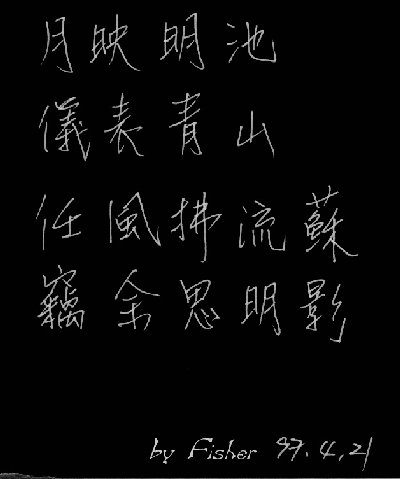 月映明池
儀表青山
任風拂流蘇
竊余思明影
by Fisher 97.4.21